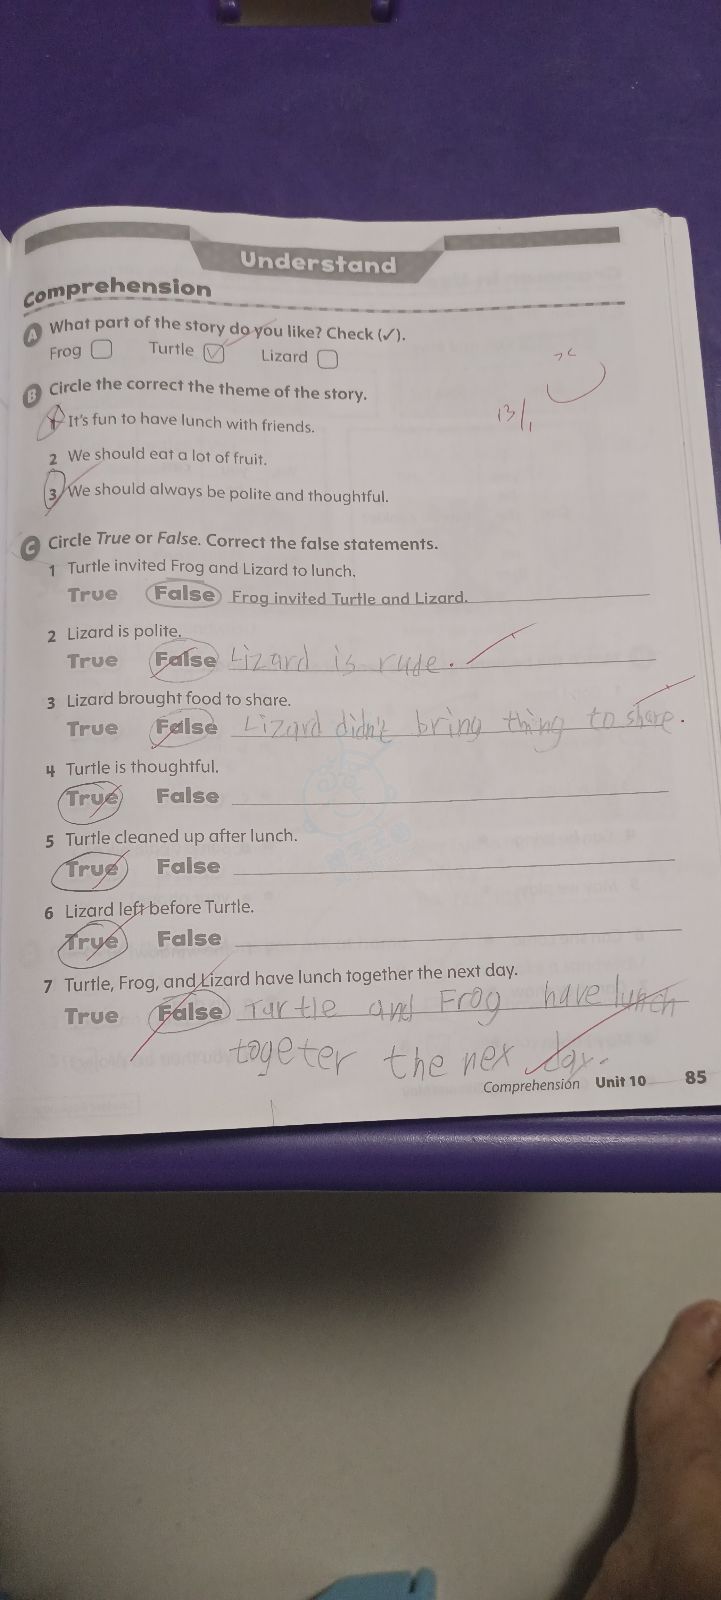 Understand
Comprehension
A What part of the story do you like? Check (✓).
Frog Turtle ✓ Lizard
B Circle the correct the theme of the story.
1 It's fun to have lunch with friends.
2 We should eat a lot of fruit.
3 We should always be polite and thoughtful.
C Circle True or False. Correct the false statements.
1 Turtle invited Frog and Lizard to lunch.
True False Frog invited Turtle and Lizard.
2 Lizard is polite.
True False Lizard is rude.
3 Lizard brought food to share.
True False Lizard didn't bring thing to share.
4 Turtle is thoughtful.
True False
5 Turtle cleaned up after lunch.
True False
6 Lizard left before Turtle.
True False
7 Turtle, Frog, and Lizard have lunch together the next day.
True False Turtle and Frog have lunch
togeter the nex day.
Comprehension Unit 10 85